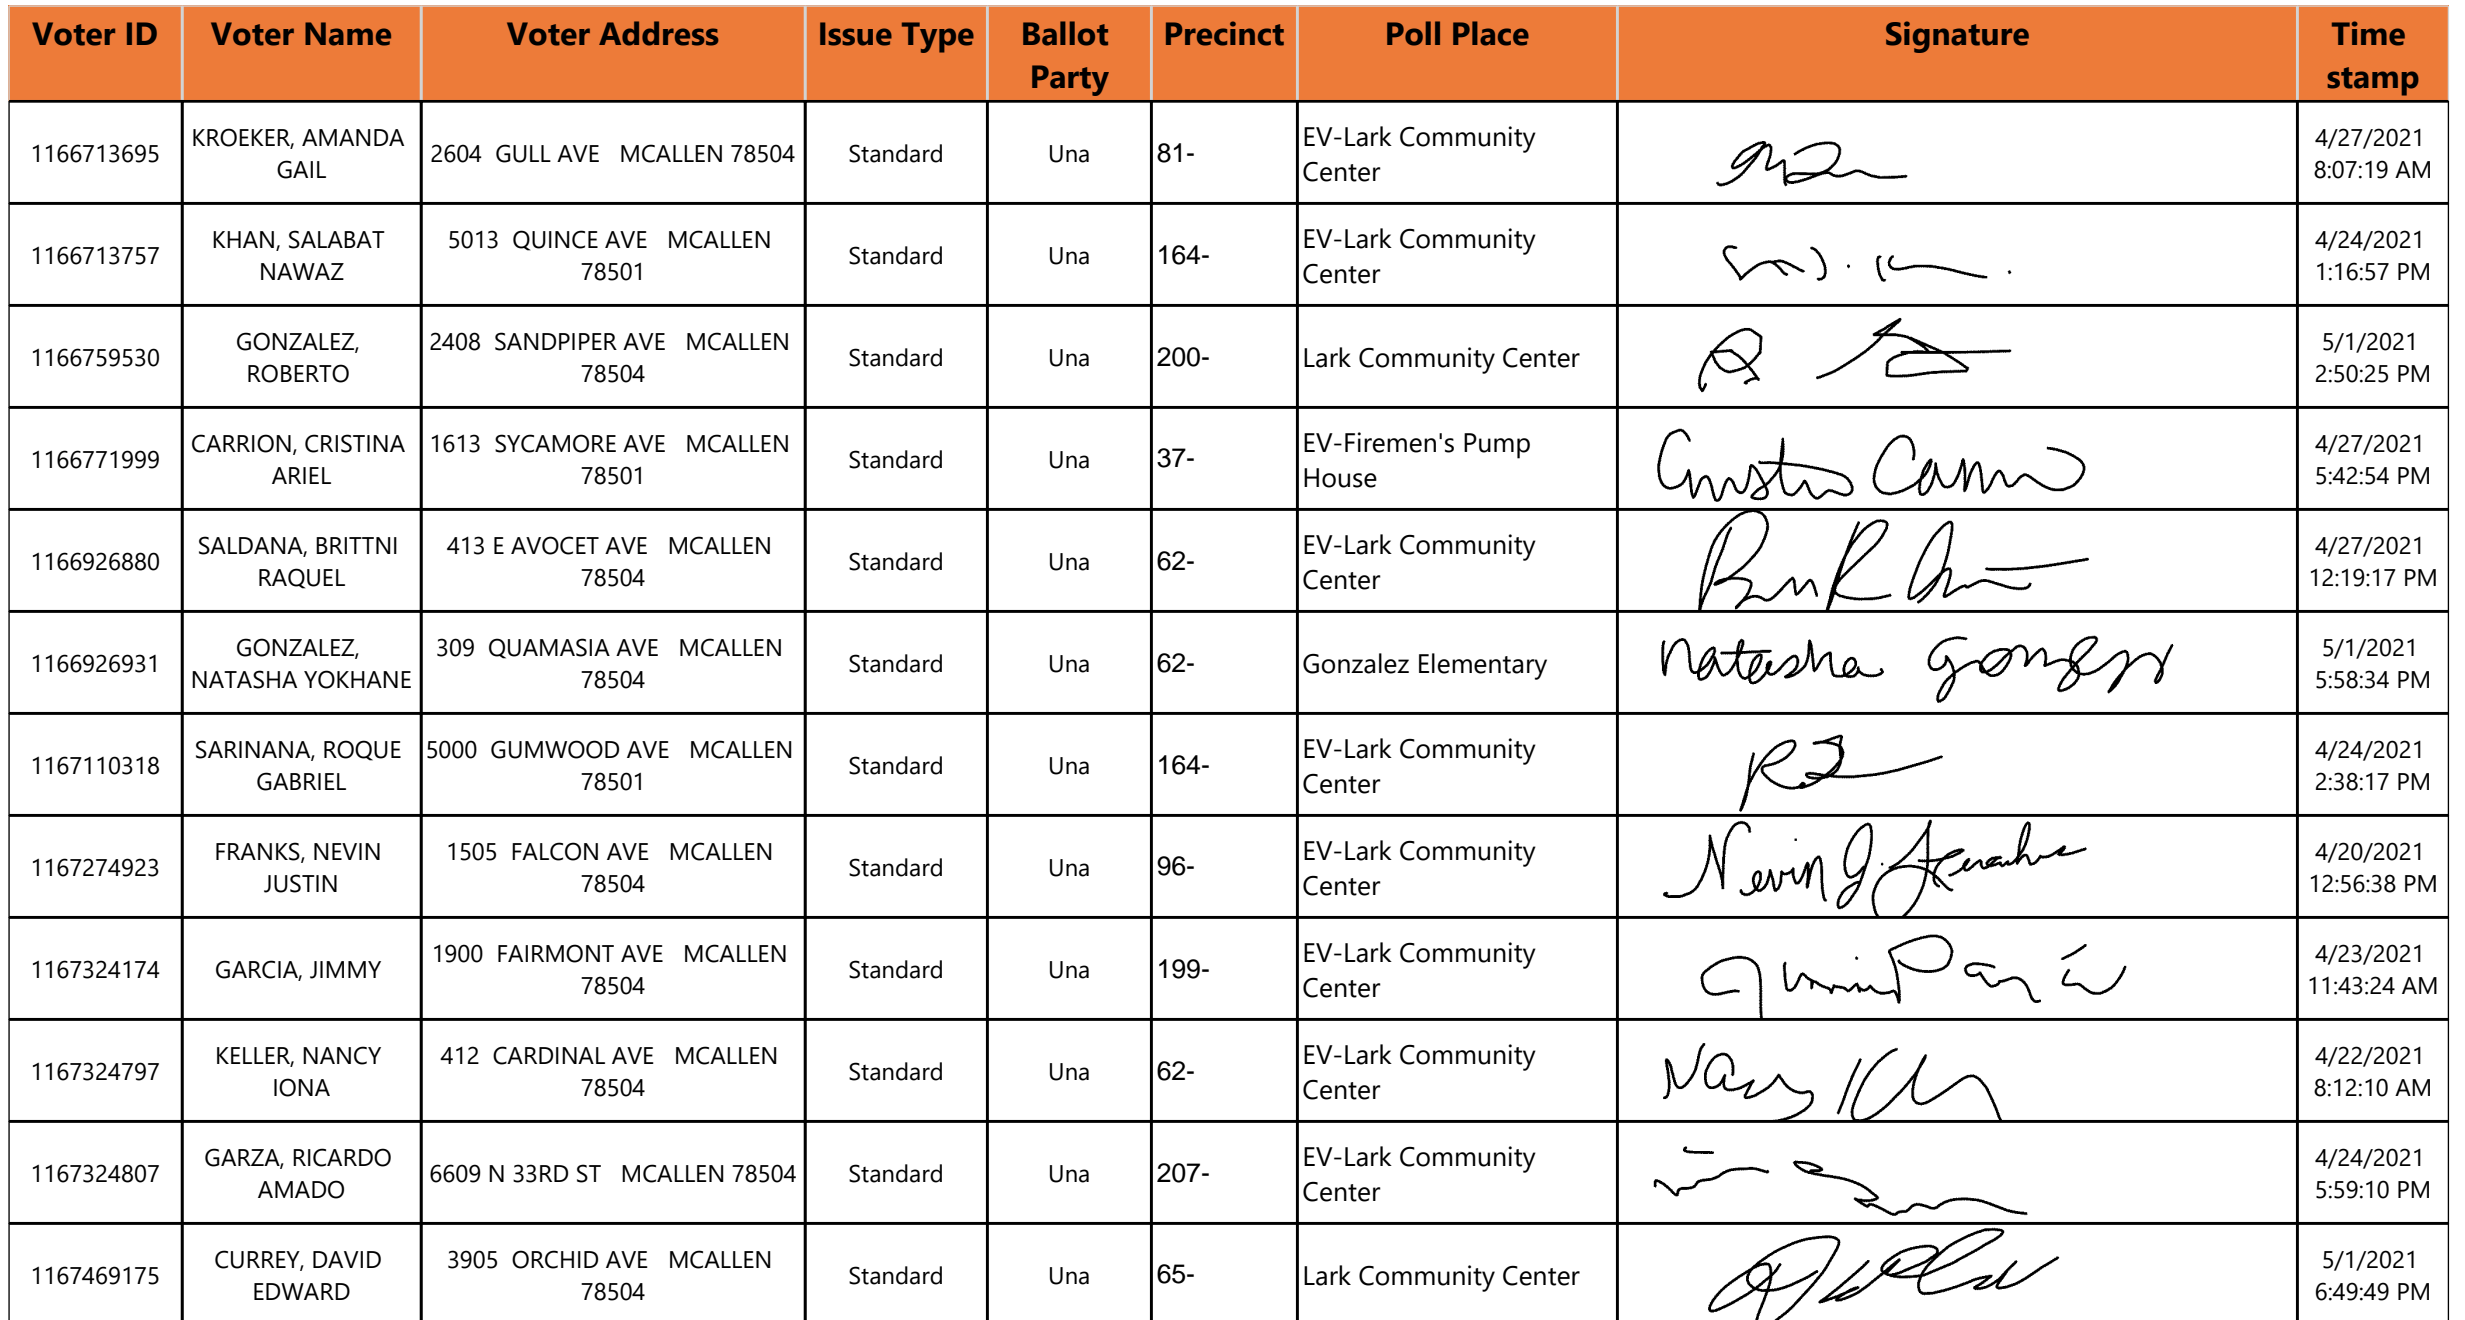 Voter ID Voter Name Voter Address Issue Type Ballot Party Precinct Poll Place Signature Time stamp
1166713695 KROEKER, AMANDA GAIL 2604 GULL AVE MCALLEN 78504 Standard Una 81- EV-Lark Community Center 4/27/2021 8:07:19 AM
1166713757 KHAN, SALABAT NAWAZ 5013 QUINCE AVE MCALLEN 78501 Standard Una 164- EV-Lark Community Center 4/24/2021 1:16:57 PM
1166759530 GONZALEZ, ROBERTO 2408 SANDPIPER AVE MCALLEN 78504 Standard Una 200- Lark Community Center 5/1/2021 2:50:25 PM
1166771999 CARRION, CRISTINA ARIEL 1613 SYCAMORE AVE MCALLEN 78501 Standard Una 37- EV-Firemen's Pump House 4/27/2021 5:42:54 PM
1166926880 SALDANA, BRITTNI RAQUEL 413 E AVOCET AVE MCALLEN 78504 Standard Una 62- EV-Lark Community Center 4/27/2021 12:19:17 PM
1166926931 GONZALEZ, NATASHA YOKHANE 309 QUAMASIA AVE MCALLEN 78504 Standard Una 62- Gonzalez Elementary Natasha 5/1/2021 5:58:34 PM
1167110318 SARINANA, ROQUE GABRIEL 5000 GUMWOOD AVE MCALLEN 78501 Standard Una 164- EV-Lark Community Center 4/24/2021 2:38:17 PM
1167274923 FRANKS, NEVIN JUSTIN 1505 FALCON AVE MCALLEN 78504 Standard Una 96- EV-Lark Community Center Nevin J. 4/20/2021 12:56:38 PM
1167324174 GARCIA, JIMMY 1900 FAIRMONT AVE MCALLEN 78504 Standard Una 199- EV-Lark Community Center 4/23/2021 11:43:24 AM
1167324797 KELLER, NANCY IONA 412 CARDINAL AVE MCALLEN 78504 Standard Una 62- EV-Lark Community Center 4/22/2021 8:12:10 AM
1167324807 GARZA, RICARDO AMADO 6609 N 33RD ST MCALLEN 78504 Standard Una 207- EV-Lark Community Center 4/24/2021 5:59:10 PM
1167469175 CURREY, DAVID EDWARD 3905 ORCHID AVE MCALLEN 78504 Standard Una 65- Lark Community Center 5/1/2021 6:49:49 PM